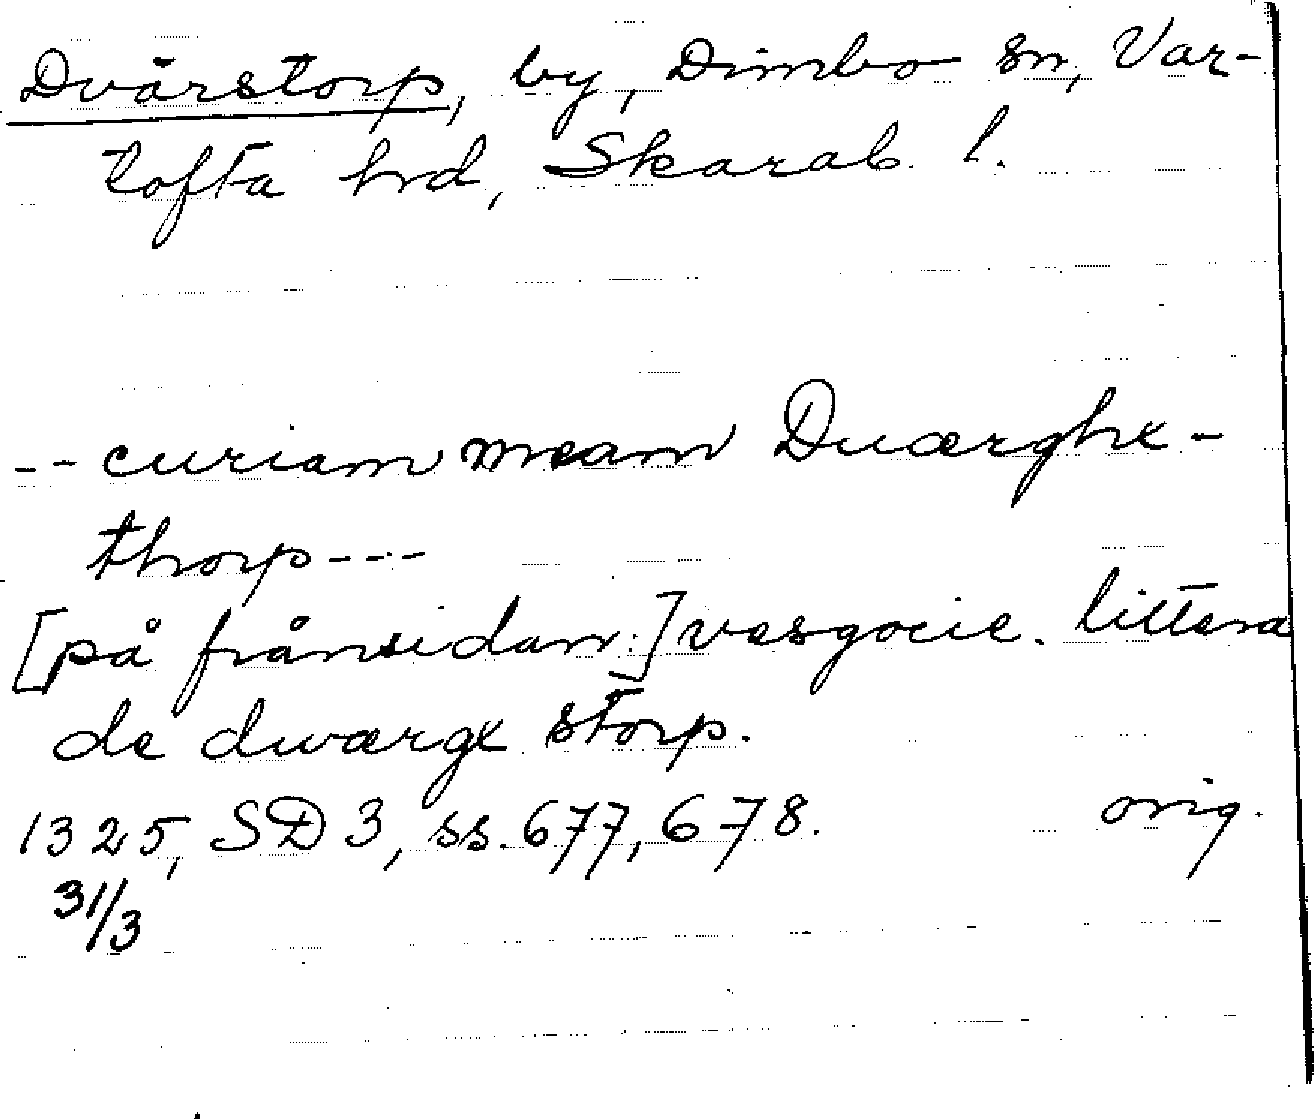 Dvärstorp, by, Dimbo sn, Var-
tofta hrd, Skarab. l.
-- curiam meam Duærghæ-
thorp ---
[på frånsidan:] vesgocie. littera
de dwærgx storp.
1325, SD 3, ss. 677, 678. orig.
31/3